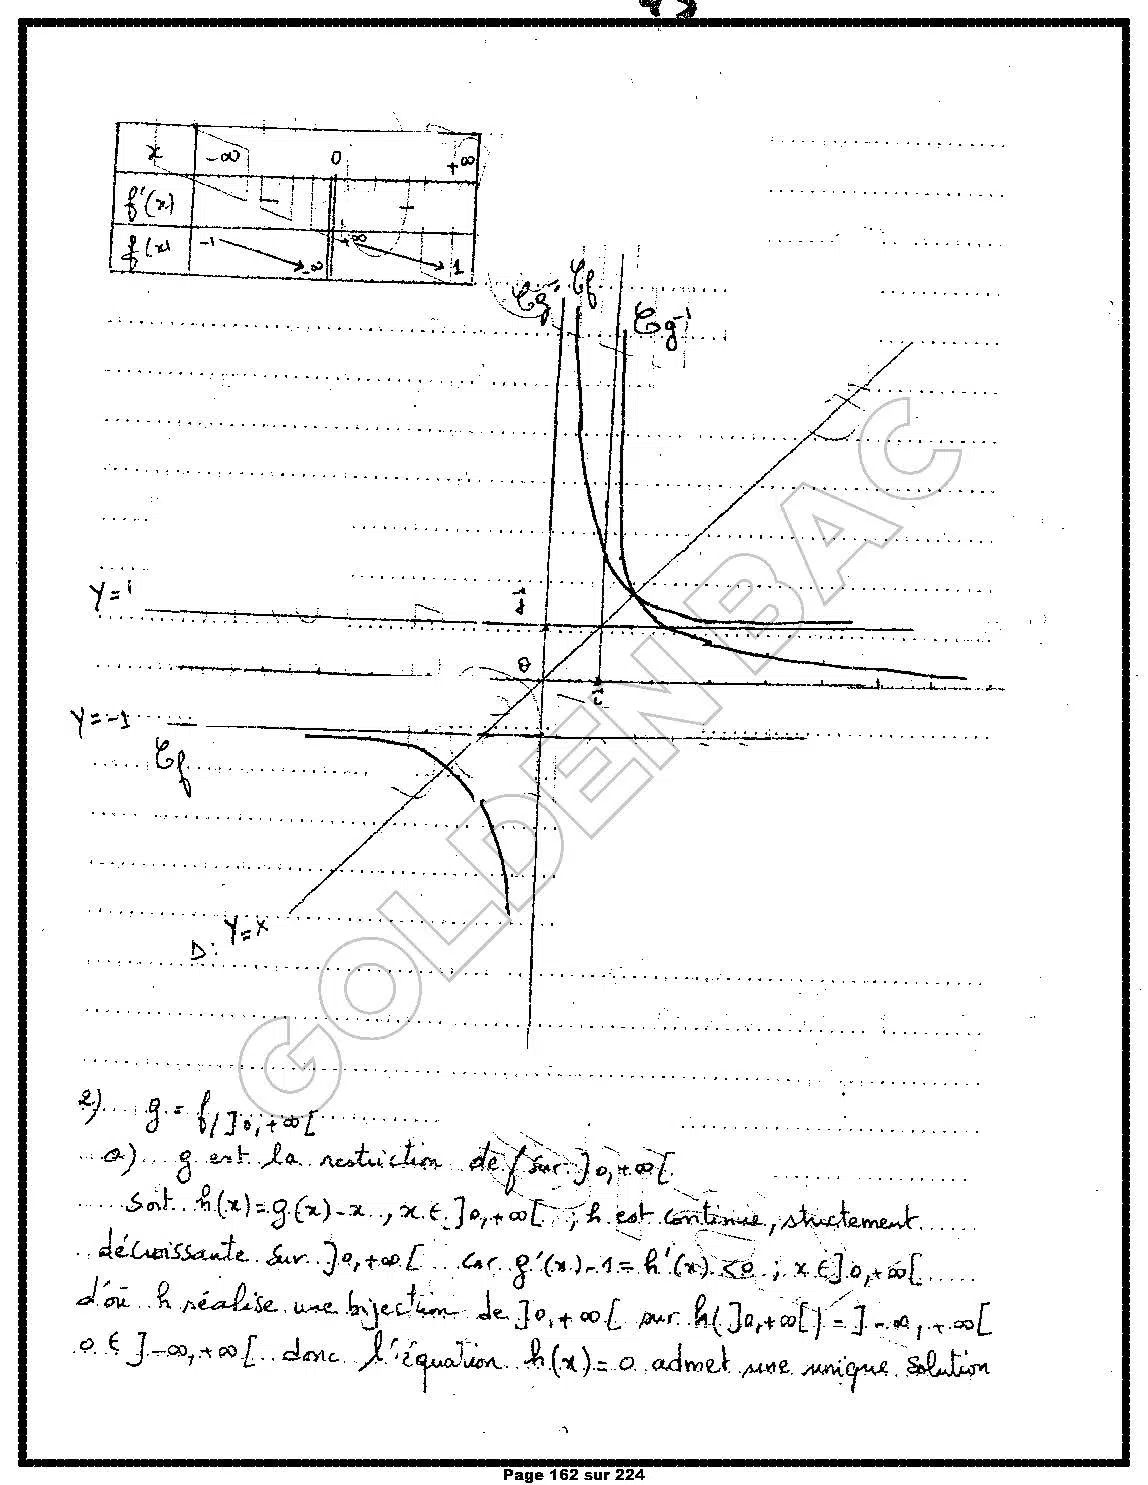 x -∞ 0 +∞
f'(x) - -
f(x) -1 -∞ +∞ 1
Cg = Cf
Cg⁻¹
Y=1
O
Y=-1
Cf
D: Y=X
GOLDEN BAC
2) g = f/]0,+∞[
a) g est la restriction de f sur ]0,+∞[
Soit h(x)=g(x)-x , x ∈ ]0,+∞[ ; h est continue, strictement
décroissante sur ]0,+∞[ car g'(x)-1=h'(x)<0 ; x∈]0,+∞[
d'où h réalise une bijection de ]0,+∞[ sur h(]0,+∞[)=]-∞,+∞[
0 ∈ ]-∞,+∞[ donc l'équation h(x)=0 admet une unique solution
Page 162 sur 224